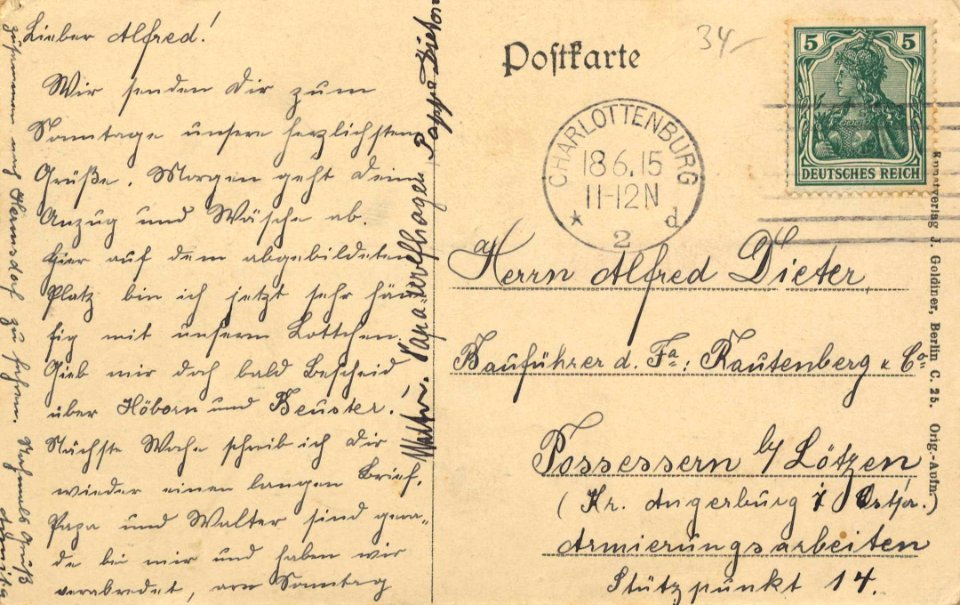 Lieber Alfred!
Wir senden Dir zum
Sonntage unsere herzlichsten
Grüße. Morgen geht Dein
Anzug und Wäsche ab.
Hier auf dem abgebildeten
Platz bin ich jetzt sehr häu-
fig mit unserm Lottchen
Gieb mir doch bald Bescheid
über Höborn und Beuster!
Nächste Woche schreib ich Dir
wieder einen langen Brief.
Papa und Walter sind gera-
de bei mir und haben wir
verabredet, am Sonntag
zusammen nach Hermsdorf zu fahren. Nochmals Gruß
Papa Dieter
Papa Velhagen
Postkarte
34
5 5
DEUTSCHES REICH
CHARLOTTENBURG
18.6.15
11-12N
* 2 d
Herrn Alfred Dieter
Bauführer d. Fa: Rautenberg & Co
Possessern b/ Lötzen
(Kr. Angerburg i Ostpr.)
Armierungsarbeiten
Stützpunkt 14.
Kunstverlag J. Goldiner, Berlin C. 25. Orig.-Aufn.